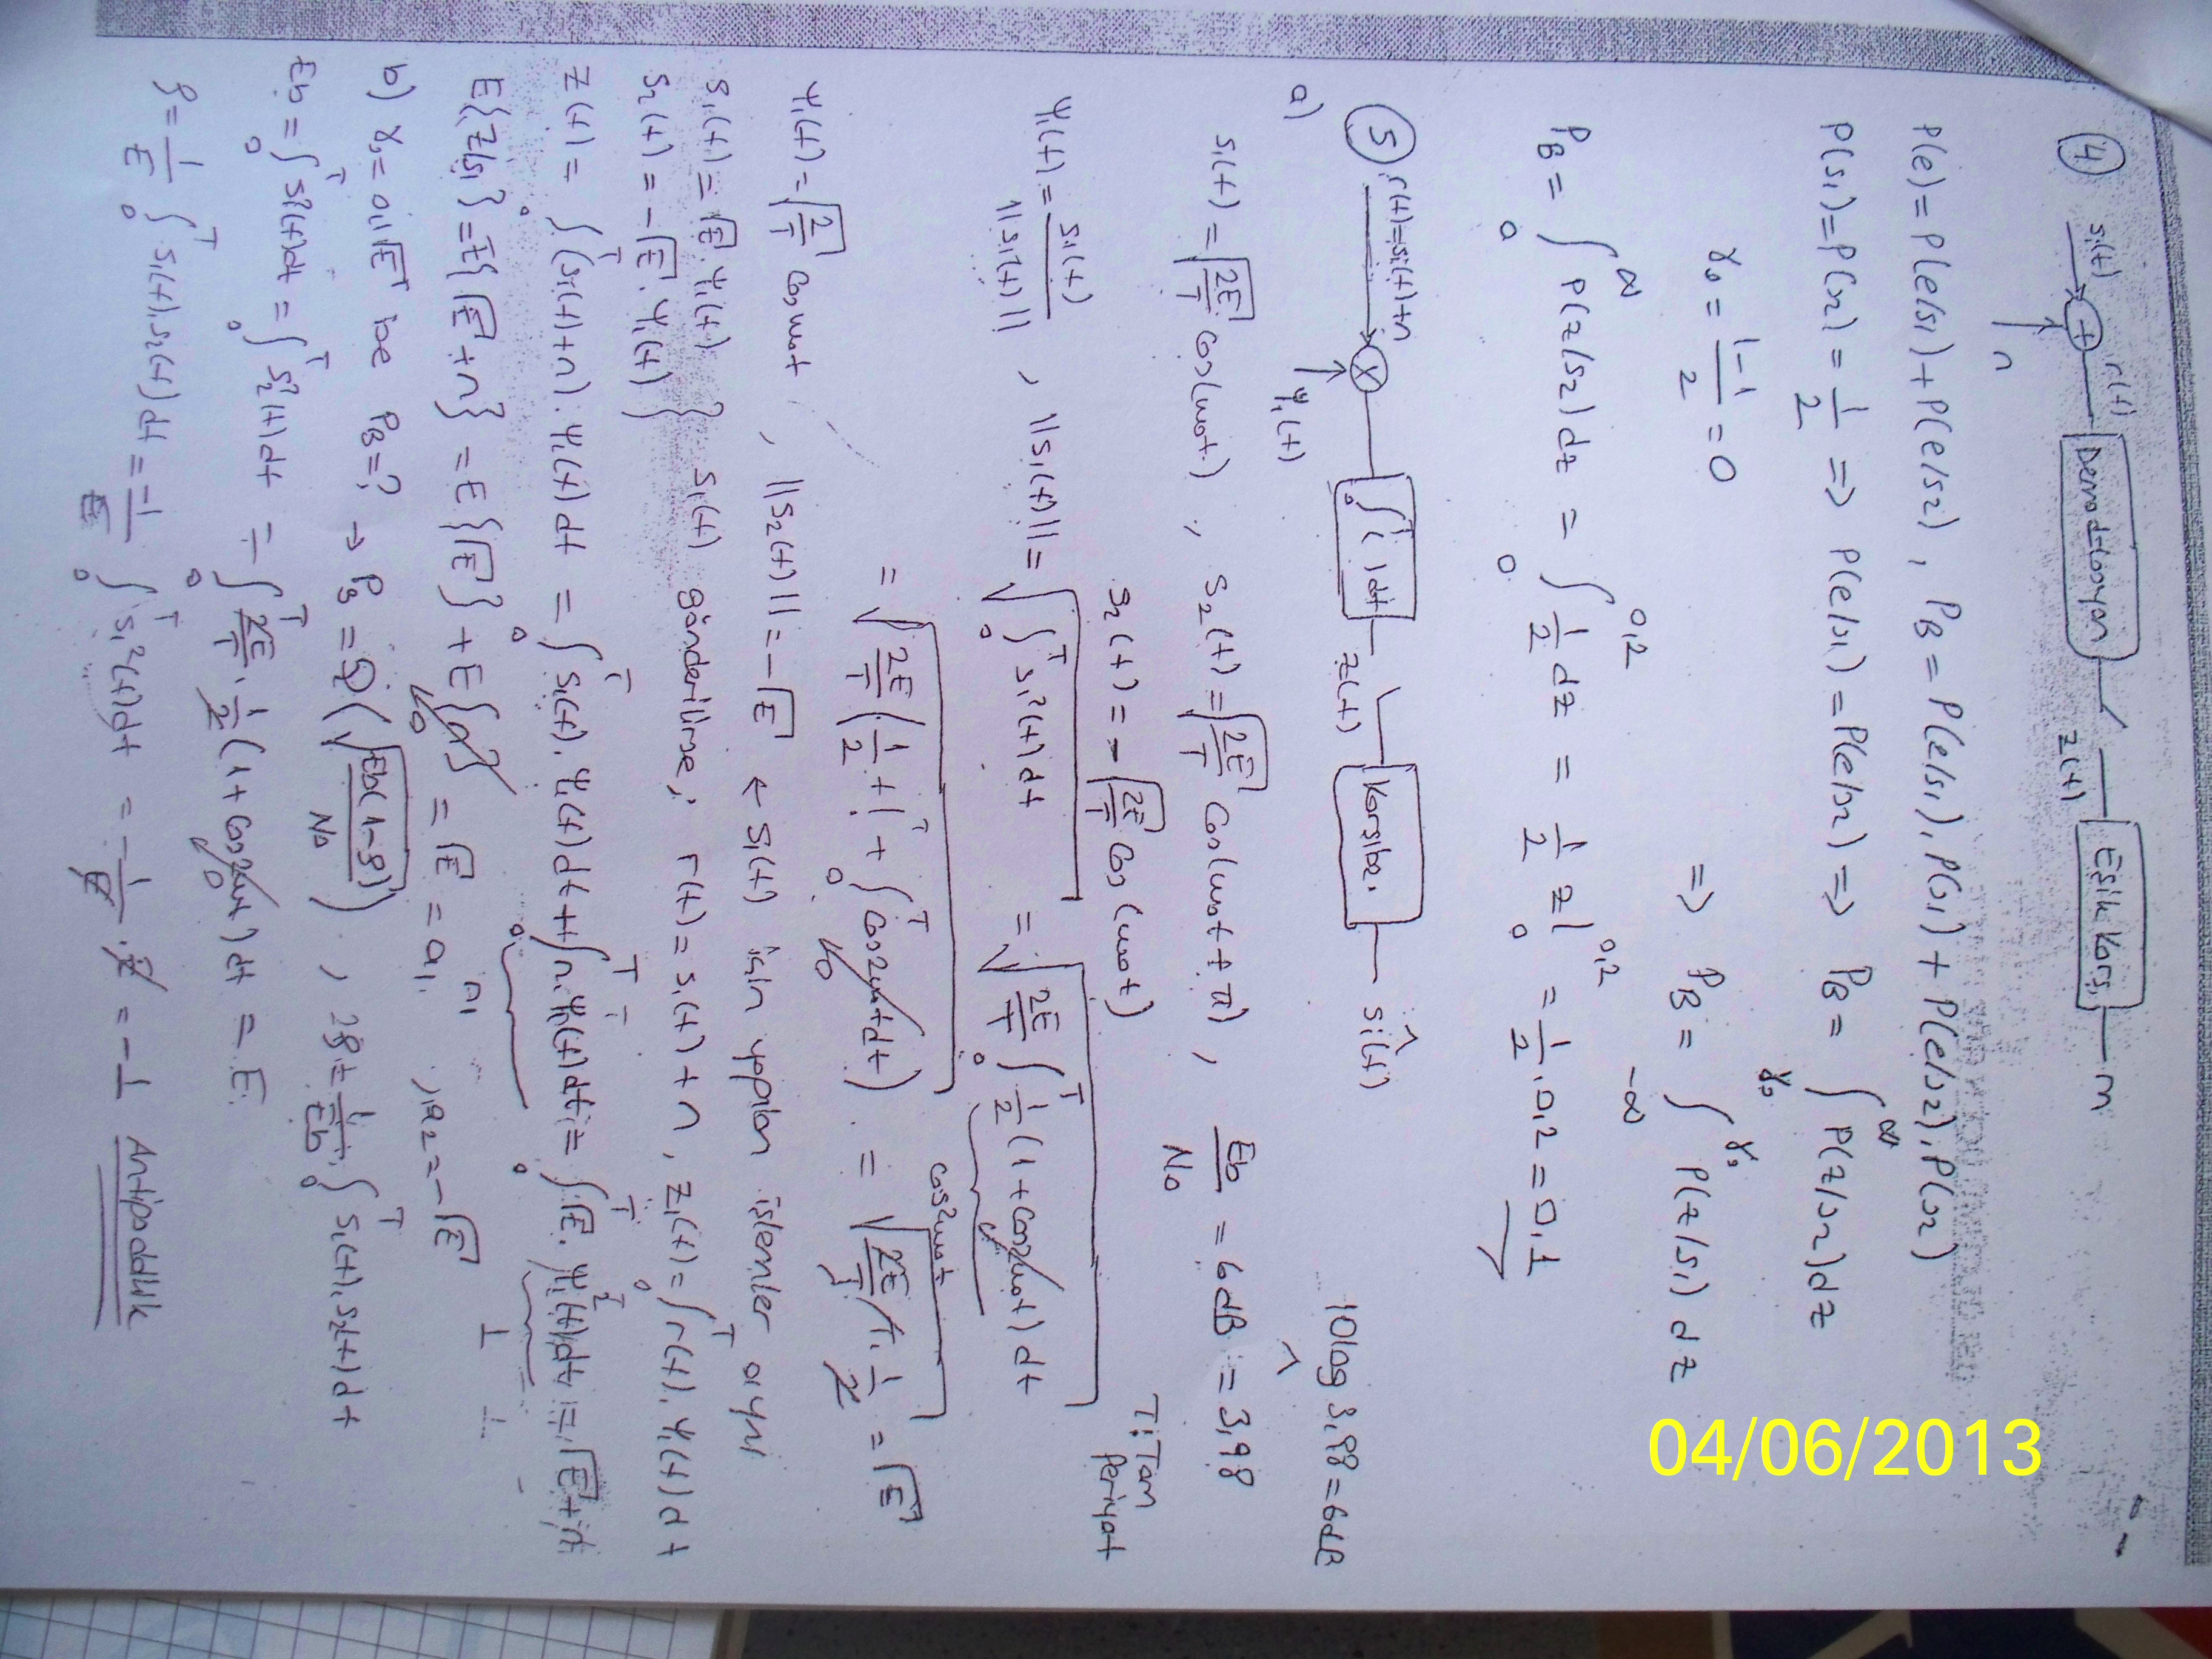 ④ si(t) + r(t) Demodülasyon z(t) Eşik Karş. m
n
P(e) = P(e/s1) + P(e/s2) , PB = P(e/s1).P(s1) + P(e/s2).P(s2)
P(s1) = P(s2) = 1/2 => P(e/s1) = P(e/s2) => PB = ∫γ0^∞ P(z/s2) dz
γ0 = (1-1)/2 = 0 => PB = ∫-∞^γ0 P(z/s1) dz
PB = ∫0^∞ P(z/s2) dz = ∫0^0,2 1/2 dz = 1/2 z|0^0,2 = 1/2 . 0,2 = 0,1
⑤ r(t) = si(t) + n × ∫0^T ( ) dt z(t) Karşılaş. ŝi(t)
ψ1(t)
10 log 3,98 = 6dB
a) s1(t) = √(2E/T) cos(w0t) , s2(t) = √(2E/T) cos(w0t + π) , Eb/N0 = 6dB = 3,98
s2(t) = -√(2E/T) cos(w0t)
T: Tam Periyot
ψ1(t) = s1(t)/||s1(t)|| , ||s1(t)|| = √(∫0^T s1²(t) dt) = √(2E/T ∫0^T 1/2 (1 + cos2w0t) dt)
cos²w0t
= √(2E/T (1/2 + | + ∫0^T cos2w0t dt)) = √(2E/T . T . 1/2) = √E
0
ψ1(t) = √(2/T) cosw0t , ||s2(t)|| = -√E ← s1(t) için yapılan işlemler aynı
s1(t) = √E . ψ1(t) } s1(t) gönderilirse; r(t) = s1(t) + n , z1(t) = ∫0^T r(t) . ψ1(t) dt
s2(t) = -√E . ψ1(t)
z(t) = ∫0^T (s1(t) + n) . ψ1(t) dt = ∫0^T s1(t) . ψ1(t) dt + ∫0^T n . ψ1(t) dt = ∫0^T √E . ψ1²(t) dt = √E + n
n 1
E{z/s1} = E{√E + n} = E{√E} + E{n} = √E = a1 , a2 = -√E
0
b) γ0 = 0,1√E ise PB = ? → PB = Q(√(Eb(1-ρ)/N0)) , ρ = 1/Eb . ∫0^T s1(t) . s2(t) dt
Eb = ∫0^T s1²(t) dt = ∫0^T s2²(t) dt = ∫0^T 2E/T . 1/2 (1 + cos2w0t) dt = E
0
ρ = 1/E ∫0^T s1(t) . s2(t) dt = -1/E ∫0^T s1²(t) dt = -1/E . E = -1 Antipodluk
04/06/2013